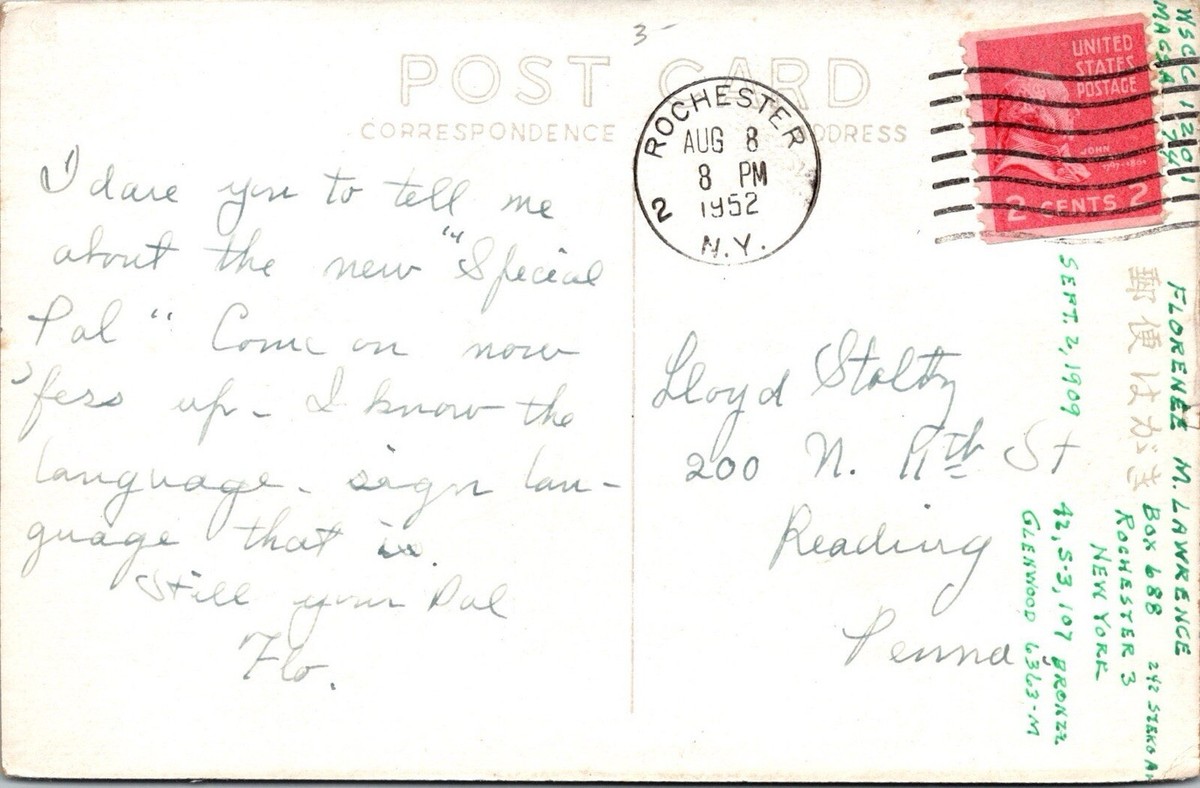 3-
POST CARD
CORRESPONDENCE
ADDRESS
ROCHESTER
AUG 8
8 PM
1952
2 N.Y.
UNITED
STATES
POSTAGE
JOHN
2 CENTS 2
I dare you to tell me
about the new "Special
Pal" Come on now
'fess up - I know the
language - sign lan-
guage that is.
Still your Pal
Flo.
Lloyd Stoltz
200 N. 11th St
Reading
Penna
WSC 1201
MASSA
郵便はがき
FLORENEE M. LAWRENCE
BOX 688 242 STEKO AV
ROCHESTER 3
NEW YORK
SEPT. 2, 1909
42, 5-3, 107 BRONZE
GLENWOOD 6363-M